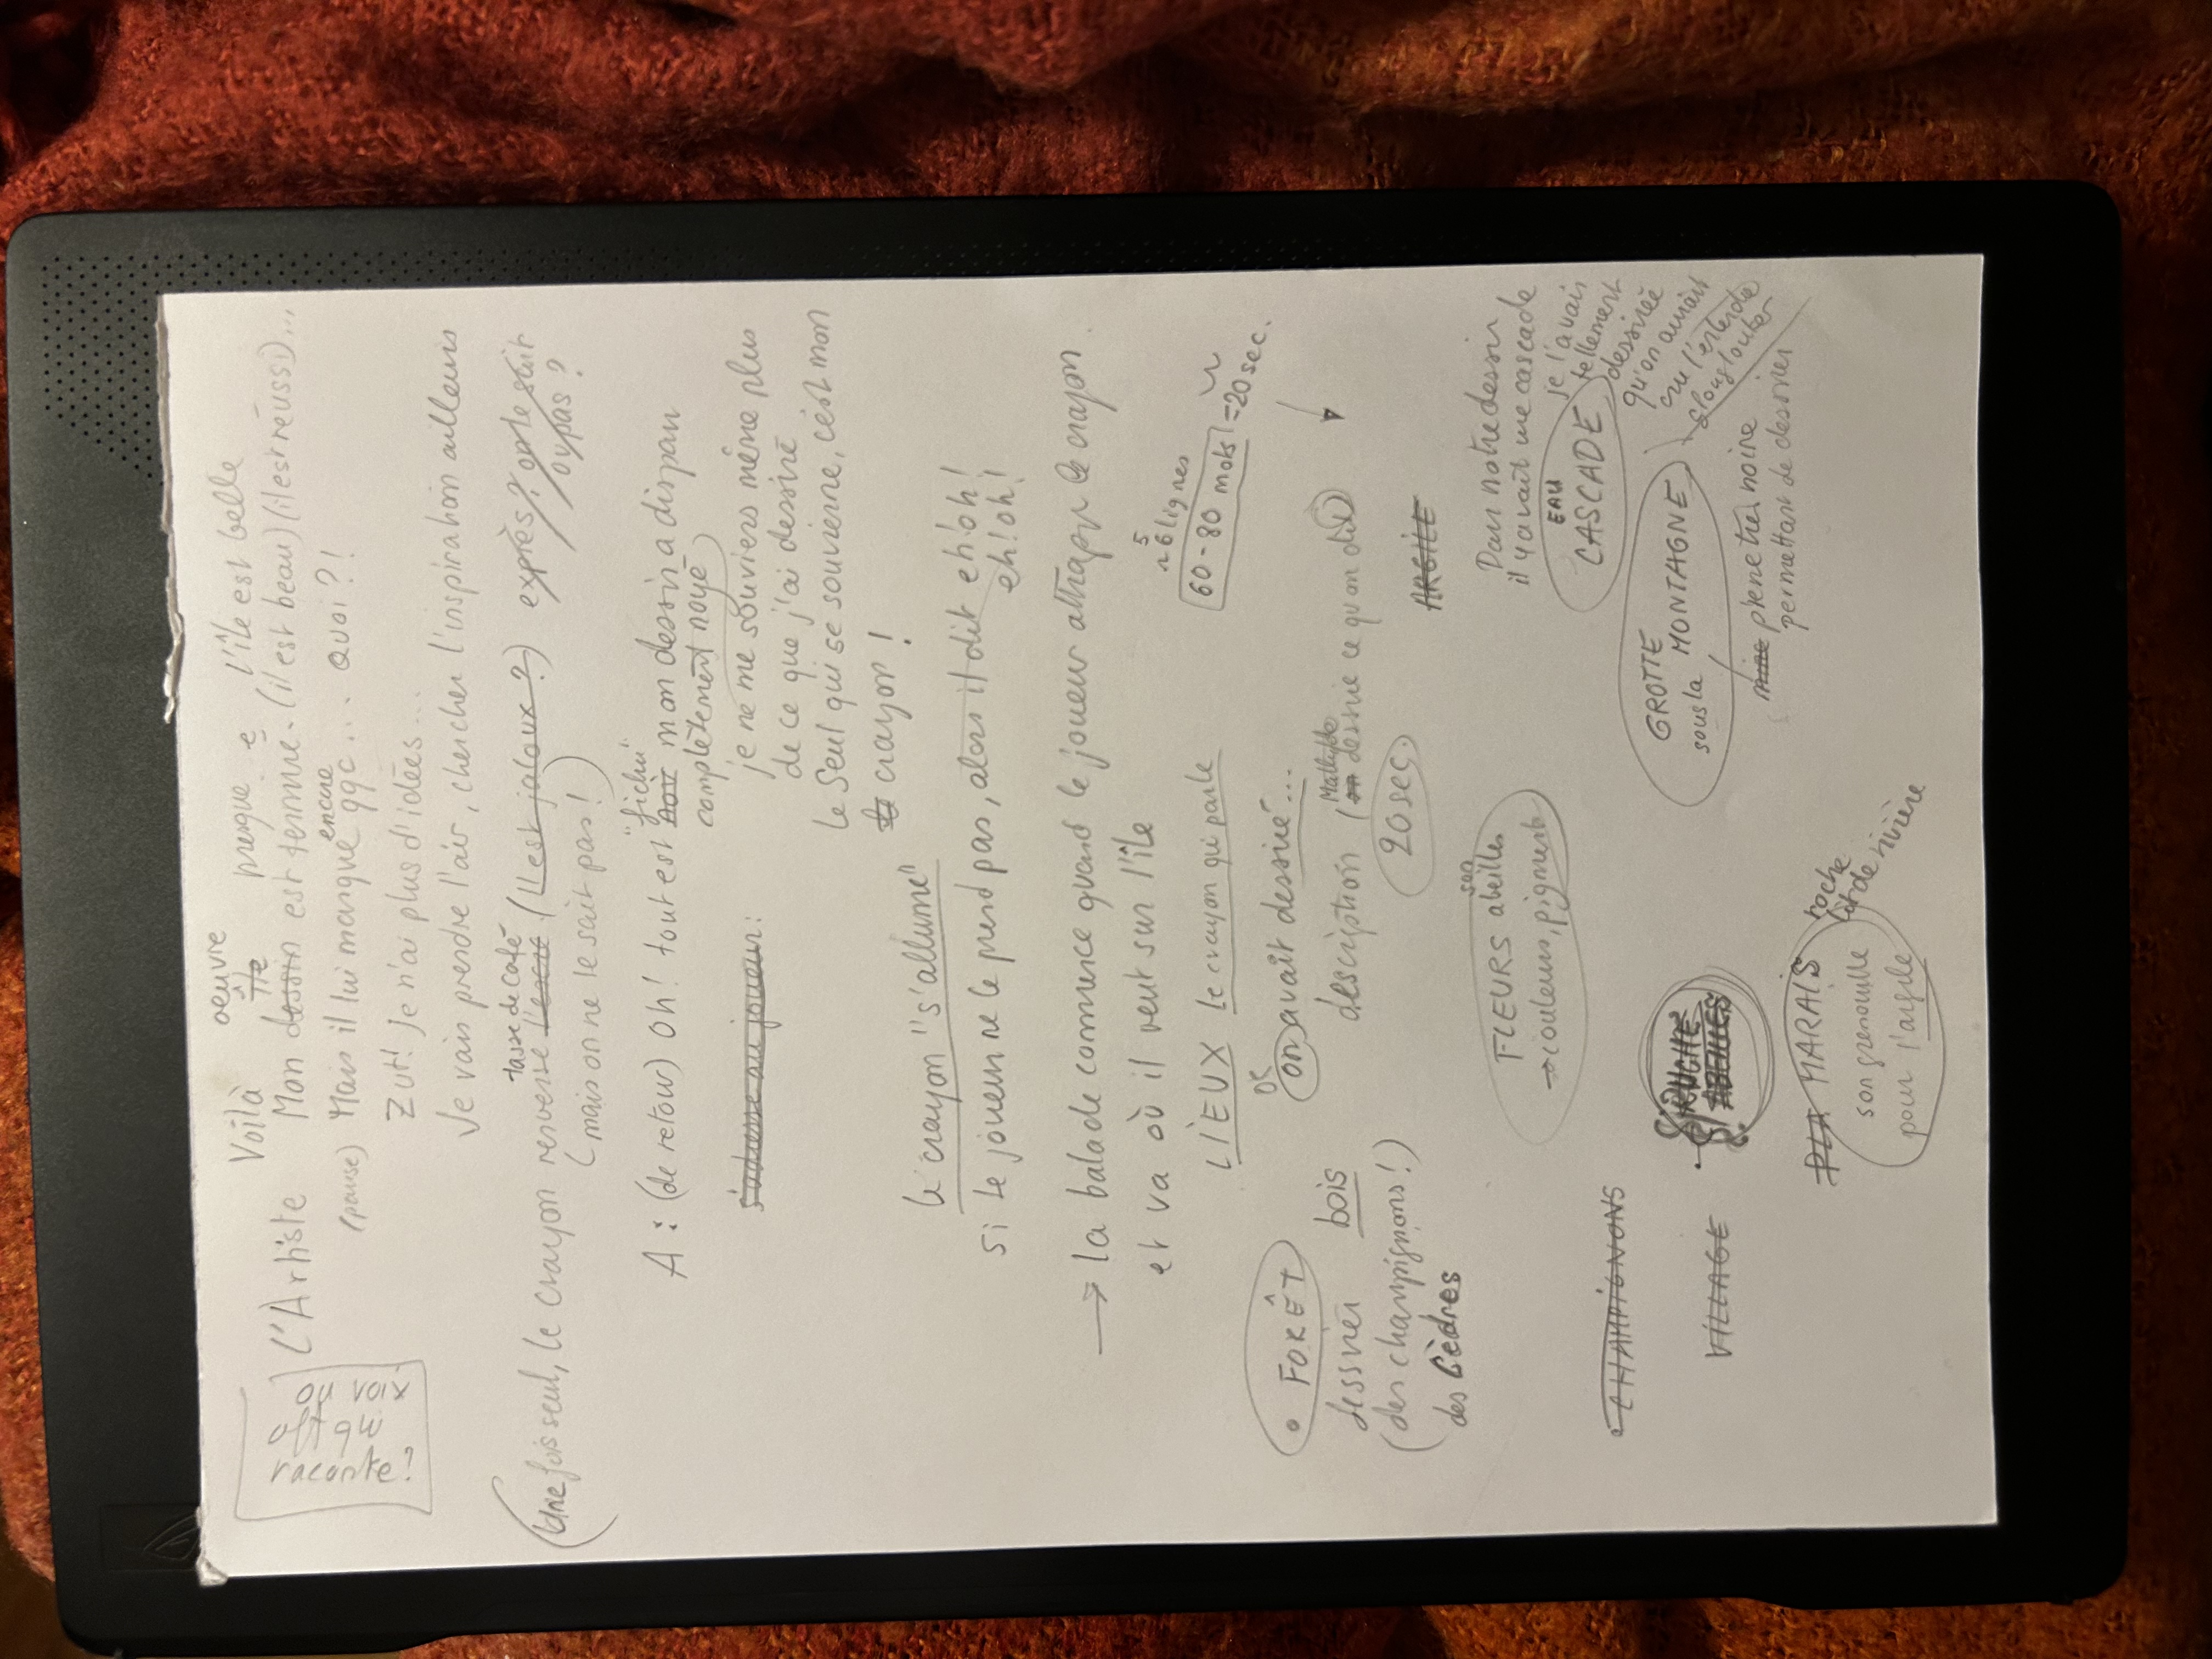 ou voix
off qui
raconte?
oeuvre
Voilà île presque e l'île est belle
L'Artiste Mon dessin est terminé. (il est beau) (il est réussi)...
encore
(pause) Mais il lui manque qqc... Quoi?!
Zut! Je n'ai plus d'idées...
Je vais prendre l'air, chercher l'inspiration ailleurs
tasse de café
(Une fois seul, le crayon renverse l'encre (Il est jaloux?) exprès? on le sait
ou pas?
(mais on ne le sait pas!)
"fichu"
A : (de retour) Oh! tout est noir mon dessin a disparu
complètement noyé
s'adresse au joueur: je ne me souviens même plus
de ce que j'ai dessiné
le Seul qui se souvienne, c'est mon
le crayon!
le crayon "s'allume"
si le joueur ne le prend pas, alors il dit eh!oh!
eh!oh!
→ la balade commence quand le joueur attrape le crayon
et va où il veut sur l'île
5
~6 lignes
LIEUX le crayon qui parle
60-80 mots =20 sec.
OK
• FORÊT
on avait dessiné...
dessiner bois
Mathilde
description (on dessine ce qu'on dit)
(des champignons!)
20 sec.
des Cèdres
ARGILE
son
FLEURS abeilles
→ couleurs, pigments
Dans notre dessin
il y avait une cascade
EAU
CASCADE
je l'avais
tellement
dessinée
qu'on aurait
cru l'entendre
glouglouter
• CHAMPIGNONS
RUCHE
ABEILLES
VILLAGE
GROTTE
sous la MONTAGNE
mine pierre très noire
permettant de dessiner
PLA MARAIS
son grenouille
pour l'argile
roche
lit de rivière